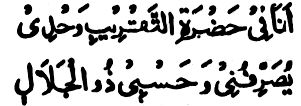 أَنَا فِيْ حَضْرَةِ التَّقْرِيْبِ وَحْدِيْ
يُصَرِّفُنِيْ وَحَسْبِيْ ذُو الْجَلَالِ